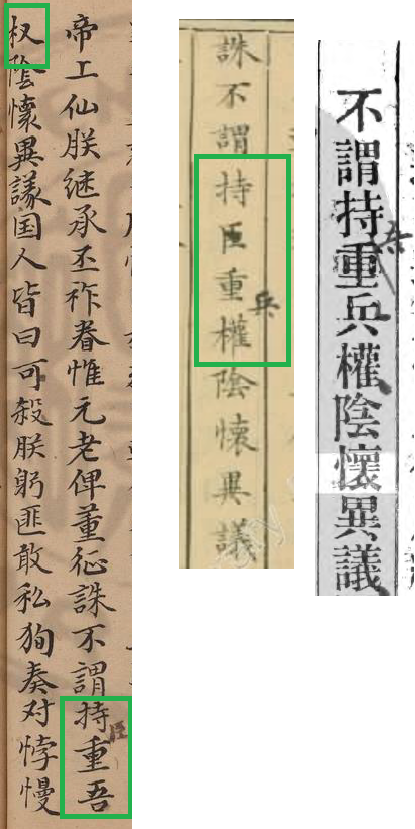 帝工仙朕継承丕祚眷惟元老俾董征誅不謂持重吾
臣
权陰懷異議国人皆曰可殺朕躬匪敢私狥奏对悖慢
誅不謂持臣重權陰懷異議
兵
不謂持重兵權陰懷異議